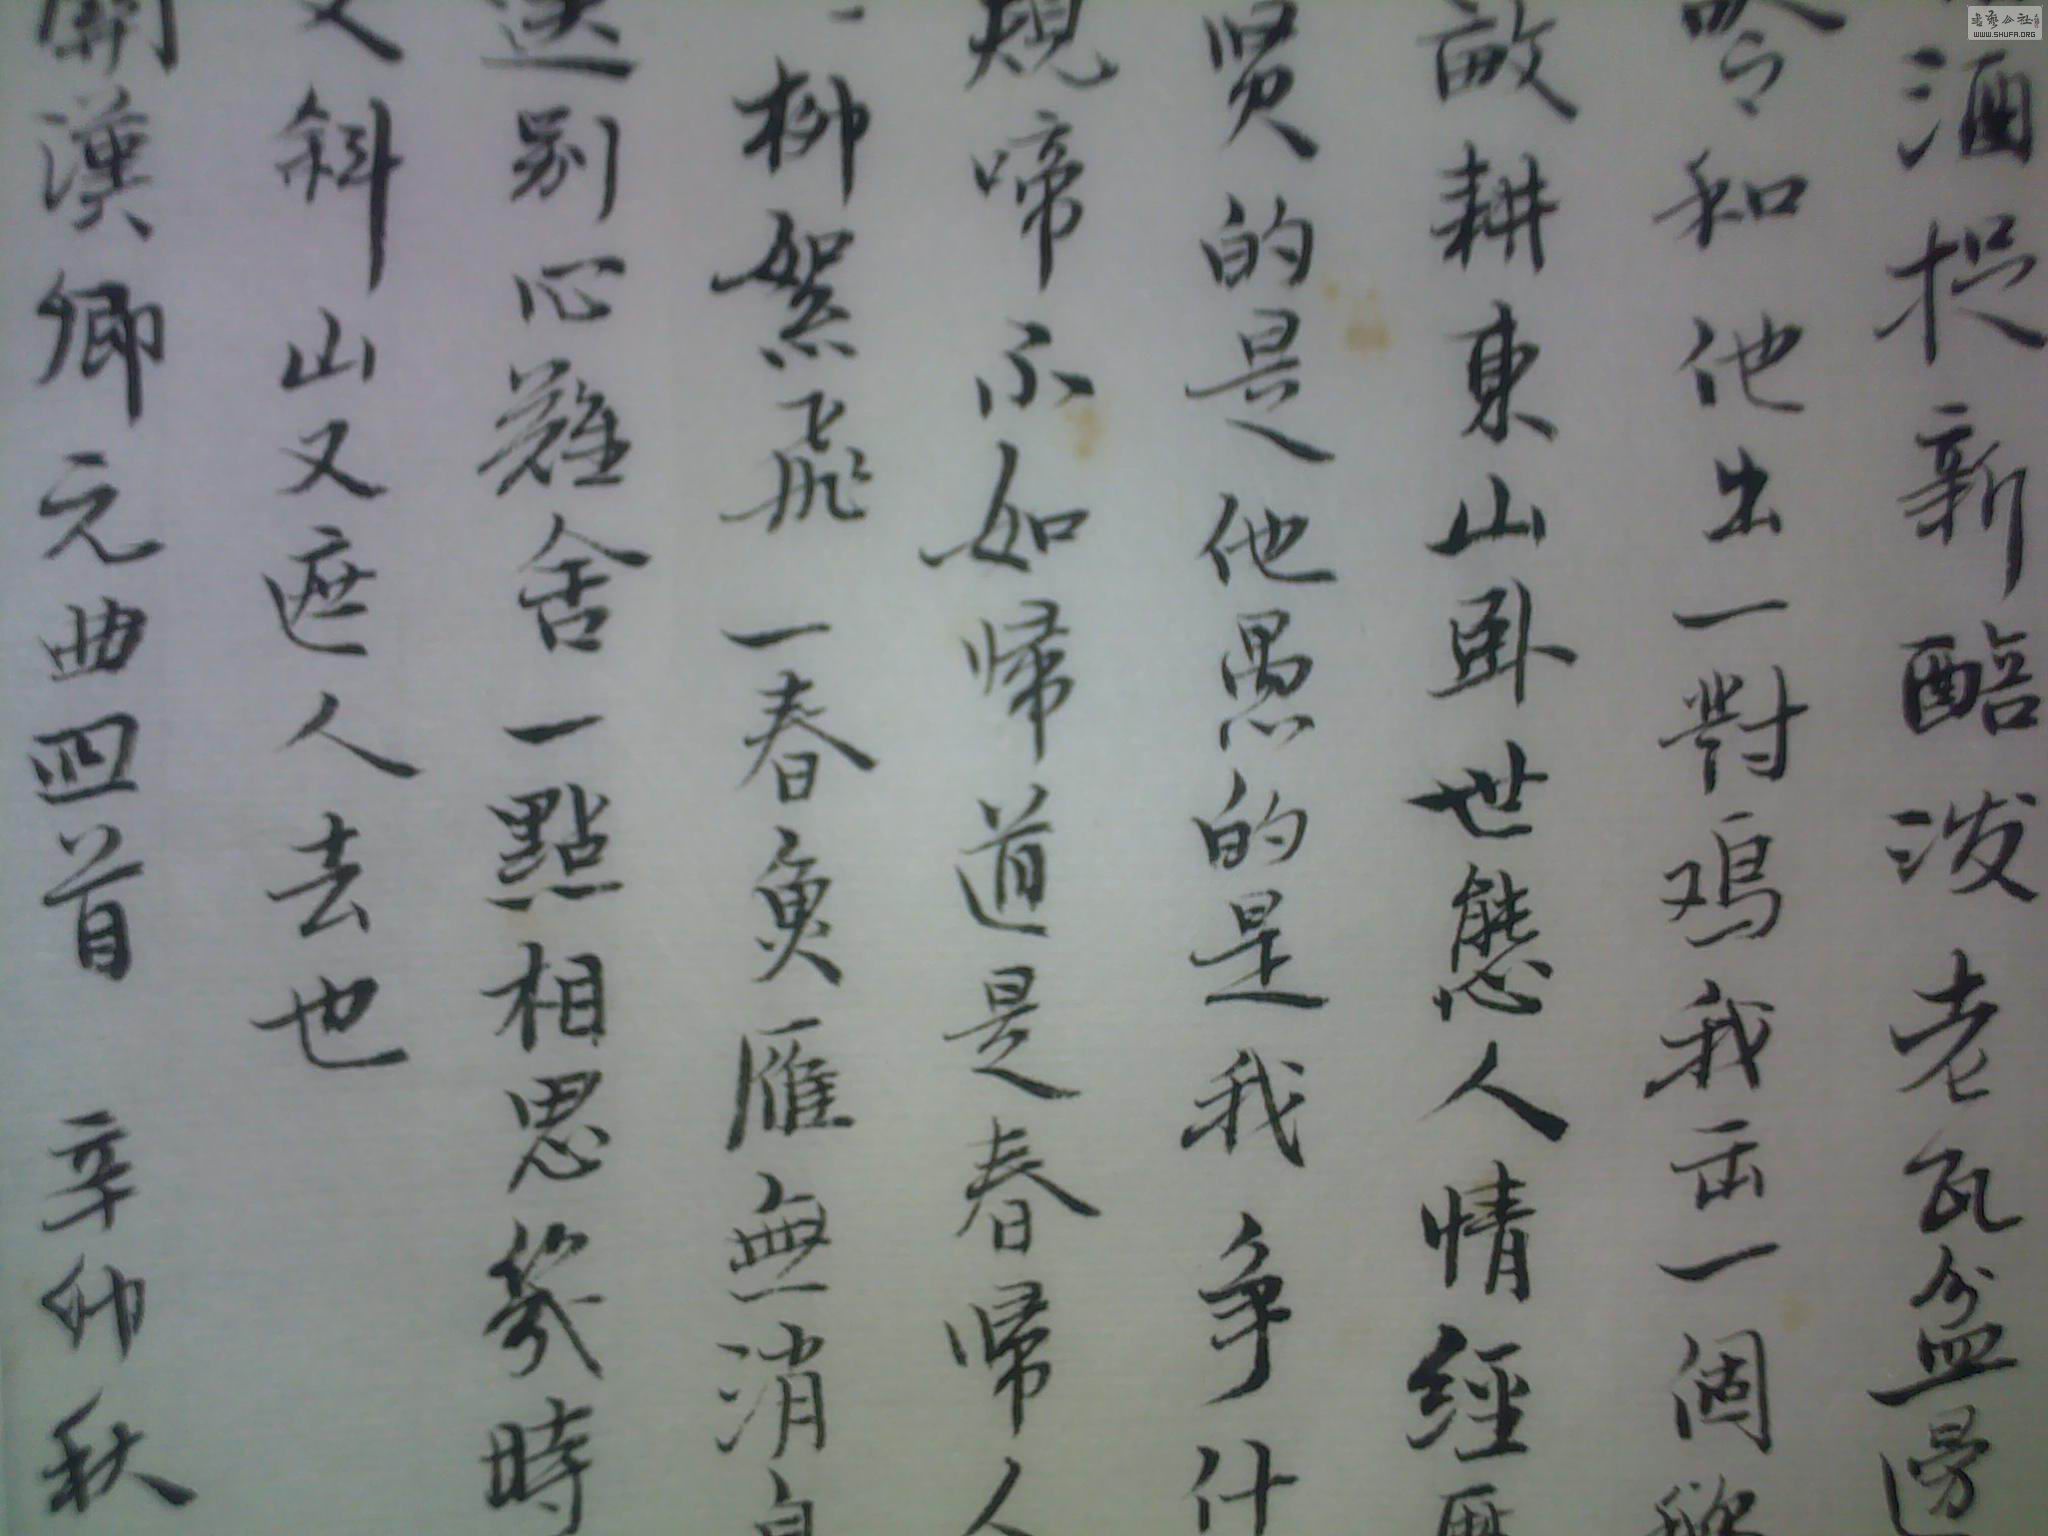 酒投新醅泼老瓦盆邊
吟和他出一對鸡我出一個
畝耕東山卧世態人情經歷
贤的是他愚的是我争什
規啼不如歸道是春歸人
柳絮飛一春魚雁無消息
送别心難舍一點相思幾時
又斜山又遮人去也
關漢卿元曲四首 辛卯秋
書藝公社
WWW.SHUFA.ORG